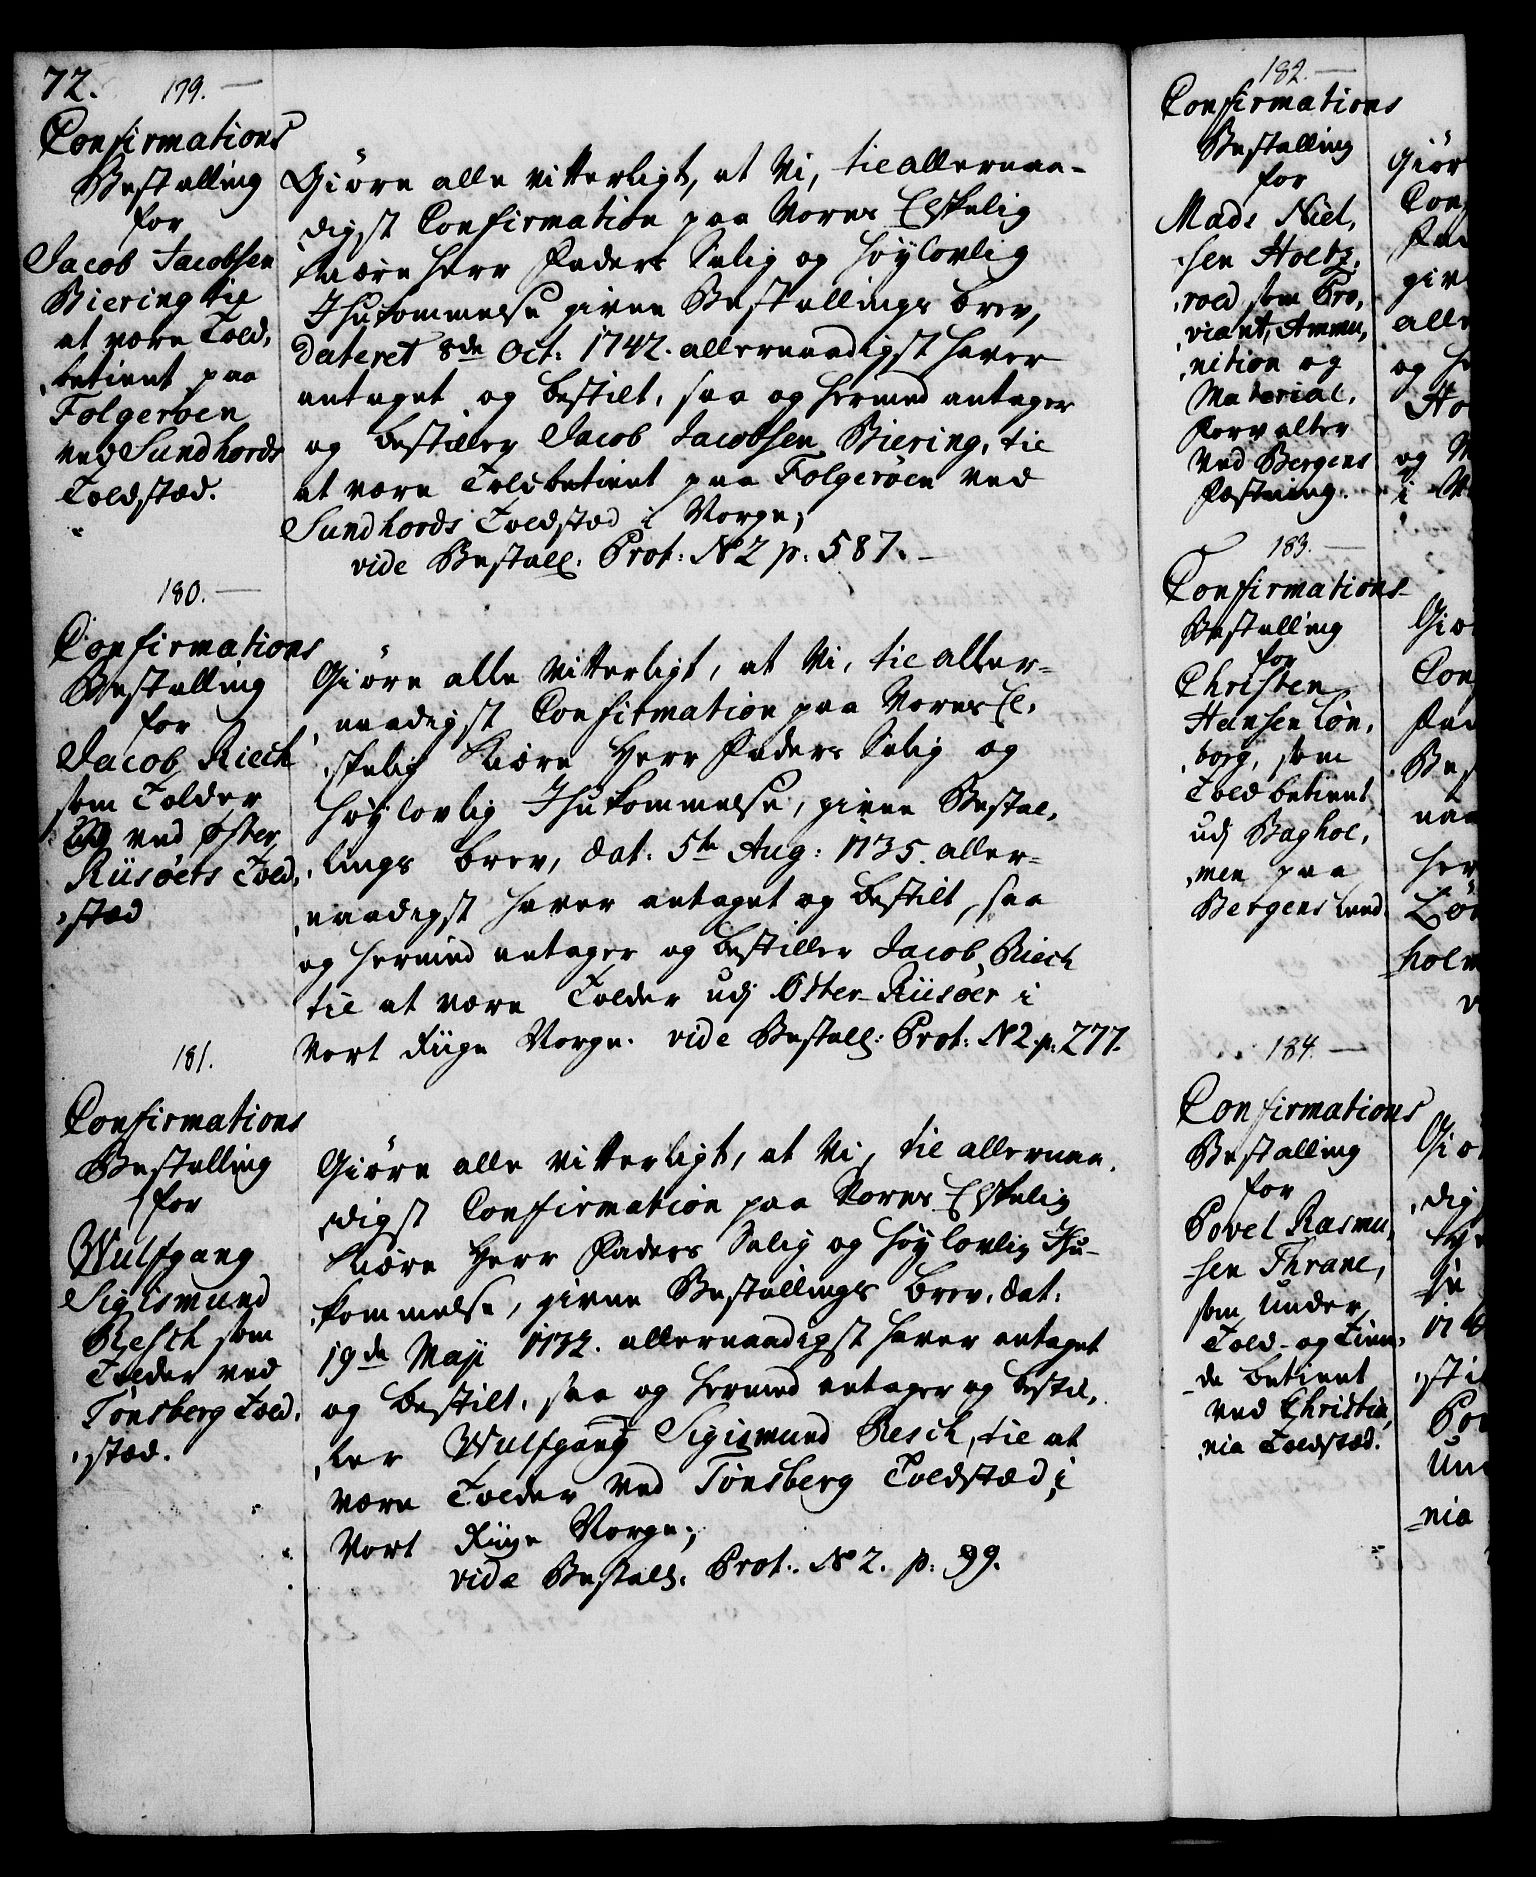 72.
179.
Confirmations
Bestalling
for
Jacob Jacobsen
Biering til
at være Told,
,betient paa
Folgerøen
ved Sundhords
Toldstæd.
Giöre alle vitterligt, at Vi, til allernaa-
digst Confirmation paa Vores Elskelig
Kiære Herr Faders Salig og Höylovlig
Ihukommelse givne Bestallings brev,
Dateret 8de Oct: 1742. allernaadigst haver
antaget og bestilt, saa og hermed antager
og bestiller Jacob Jacobsen Biering, til
at være Toldbetient paa Folgeröen ved
Sundhords Toldstæd i Norge;
vide Bestall: Prot: N2 p. 587.
180.
Confirmations
Bestalling
for
Jacob Riech
som Tolder
ved Øster,
Riisöers Told,
,stæd
Giöre alle vitterligt, at Vi, til aller-
,naadigst Confirmation paa Vores El,
,skelig Kiære Herr Faders Salig og
Höylovlig Ihukommelse, givne Bestal,
,lings brev, dat: 5te Aug: 1735. aller-
,naadigst haver antaget og bestilt, saa
og hermed antager og bestiller Jacob Riech
til at være Tolder udj Öster-Riisöer i
Vort Riige Norge. vide Bestall: Prot: N2 p: 277.
181.
Confirmations
Bestalling
for
Wulfgang
Sigismund
Resch som
Tolder ved
Tönsberg Told,
,stæd.
Giöre alle vitterligt, at Vi, til allernaa,
,digst Confirmation paa Vores Elskelig
Kiære Herr Faders Salig og Höylovlig Ihu-
kommelse, givne Bestallings brev, dat:
19de Maji 1732. allernaadigst haver antaget
og bestilt, saa og hermed antager og bestil,
,ler Wulfgang Sigismund Resch, til at
være Tolder ved Tönsberg Toldstæd i
Vort Riige Norge;
vide Bestall: Prot: N2. p: 99.
182.
Confirmations
Bestalling
for
Mads Niel,
,sen Holtz,
,roed som Pro,
,viant, Ammu,
,nition og
Material,
Forvalter
ved Bergens
Fæstning.
Giör
og
i
183.
Confirmations
Bestalling
for
Christen
Hansen Lön,
,borg, som
Toldbetient
udj Baghol,
,men paa
Bergens
Giö
184.
Confirmations
Bestalling
for
Povel Rasmu,
-sen Thrane,
som Under
Told- og Tien,
-de betient
ved Christia,
,nia Toldstæd.
Giö
,dig
-nia